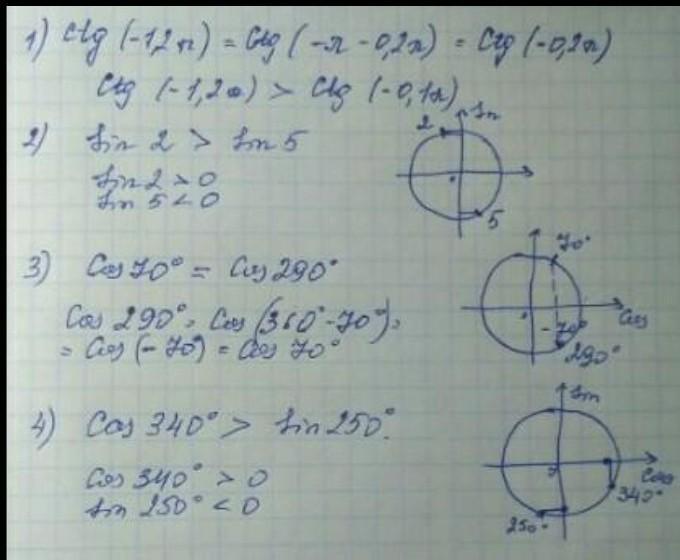 1) Ctg (-1,2π) = Ctg (-π - 0,2π) = Ctg (-0,2π)
Ctg (-1,2π) > Ctg (-0,1π)
2) Sin 2 > Sin 5
Sin 2 > 0
Sin 5 < 0
2
Sin
5
3) Cos 70° = Cos 290°
Cos 290° = Cos (360° - 70°) =
= Cos (-70°) = Cos 70°
70°
Cos
-70°
290°
4) Cos 340° > Sin 250°.
Cos 340° > 0
Sin 250° < 0
Sin
Cos
340°
250°